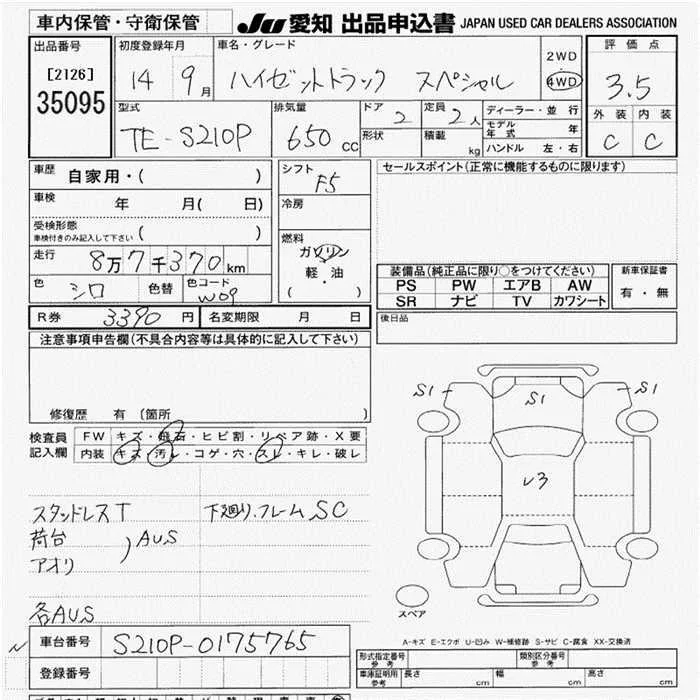 車内保管・守衛保管 JU 愛知 出品申込書 JAPAN USED CAR DEALERS ASSOCIATION
出品番号 初度登録年月 車名・グレード 2WD 評価点
[2126] 14 9月 ハイゼットトラック スペシャル 4WD 3.5
35095
型式 排気量 ドア 2 定員 2人 ディーラー・並行 外装 内装
TE-S210P 650 cc 形状 積載 kg モデル年式 年 C C
ハンドル 左・右
車歴 自家用・( ) シフト F5 セールスポイント(正常に機能するものに限ります)
車検 年 月( 日) 冷房
受検形態 ( )
車検付きのみ記入して下さい
燃料
走行 8万7千370km ガソリン
軽・油
( )
色 シロ 色替 色コード W09
装備品(純正品に限り○をつけてください) 新車保証書
PS PW エアB AW 有・無
SR ナビ TV カワシート
R券 3390円 名変期限 月 日 後日品
注意事項申告欄(不具合内容等は具体的に記入して下さい)
修復歴 有 〔箇所 〕
検査員記入欄 FW キズ・飛石・ヒビ割・リペア跡・X要
内装 キズ・汚レ・コゲ・穴・スレ・キレ・破レ
S1 S1 S1
U3
スタッドレスT 下廻り.フレームSC
荷台
アオリ )AUS
各AUS
スペア
A-キズ E-エクボ U-凹み W-補修跡 S-サビ C-腐食 XX-交換済
車台番号 S210P-0175765
登録番号
形式指定番号 参考 類別区分番号 参考
車庫証明用 参考 長さ cm 幅 cm 高さ cm